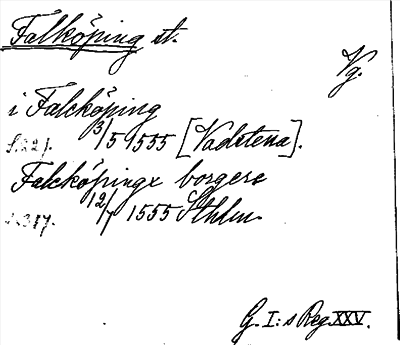 Falköping st.
Vg.
i Falcköping
S. 221. 3/5 1555 [Vadstena].
Falcköpingx borgere
S. 317. 12/7 1555 Sthlm.
G. I:s Reg. XXV.